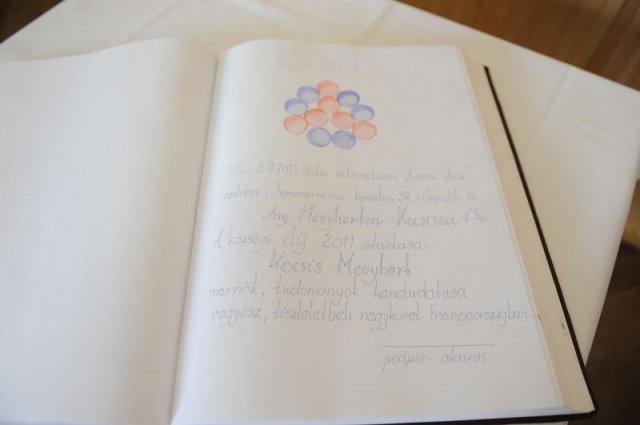 2.9.2011
Dňa 2.9.2011 bola odovzdaná "Cena obce"
vedcovi, honorárnemu konzulovi SR v Grenobli Fr.
Ing. Menyhértovi Kocsisovi CSc.
A községi díj 2011 átadása.
Kocsis Menyhért
mérnök, tudományok kandudátusa
vegyész, tiszteletbeli nagykövet Franciaországban
podpis - aláírás